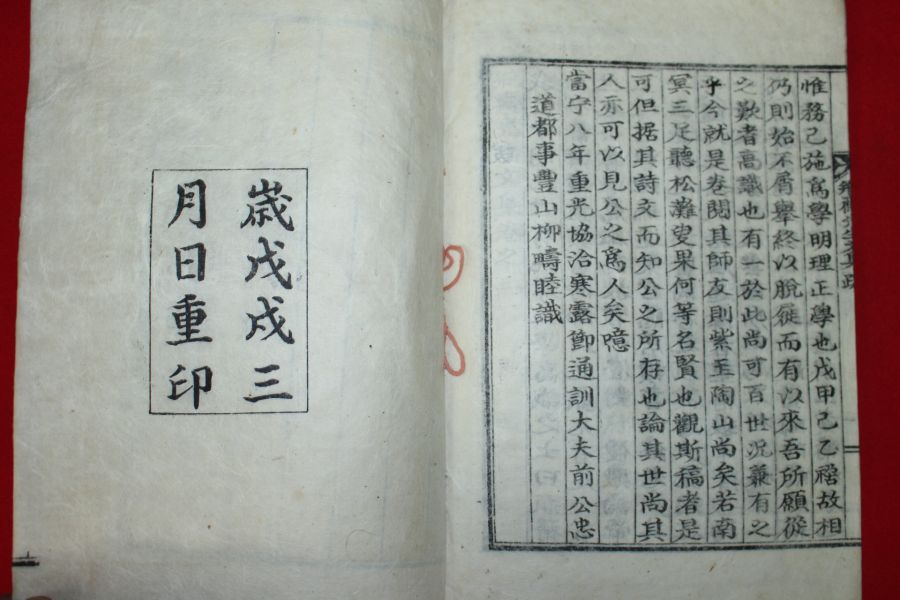 惟務己施爲學明理正學也戊甲己乙禧故相
仍則始不屑舉終以脫徙而有以來吾所願從
之歎者高識也有一於此尚可百世況兼有之
乎今就是卷閱其師友則紫玉陶山尚矣若南
冥三足聽松灘叟果何等名賢也觀斯稿者是
可但据其詩文而知公之所存也論其世尚其
人亦可以見公之爲人矣噫
當宁八年重光協洽寒露節通訓大夫前公忠
道都事豐山柳疇睦識
歲戊戌三
月日重印